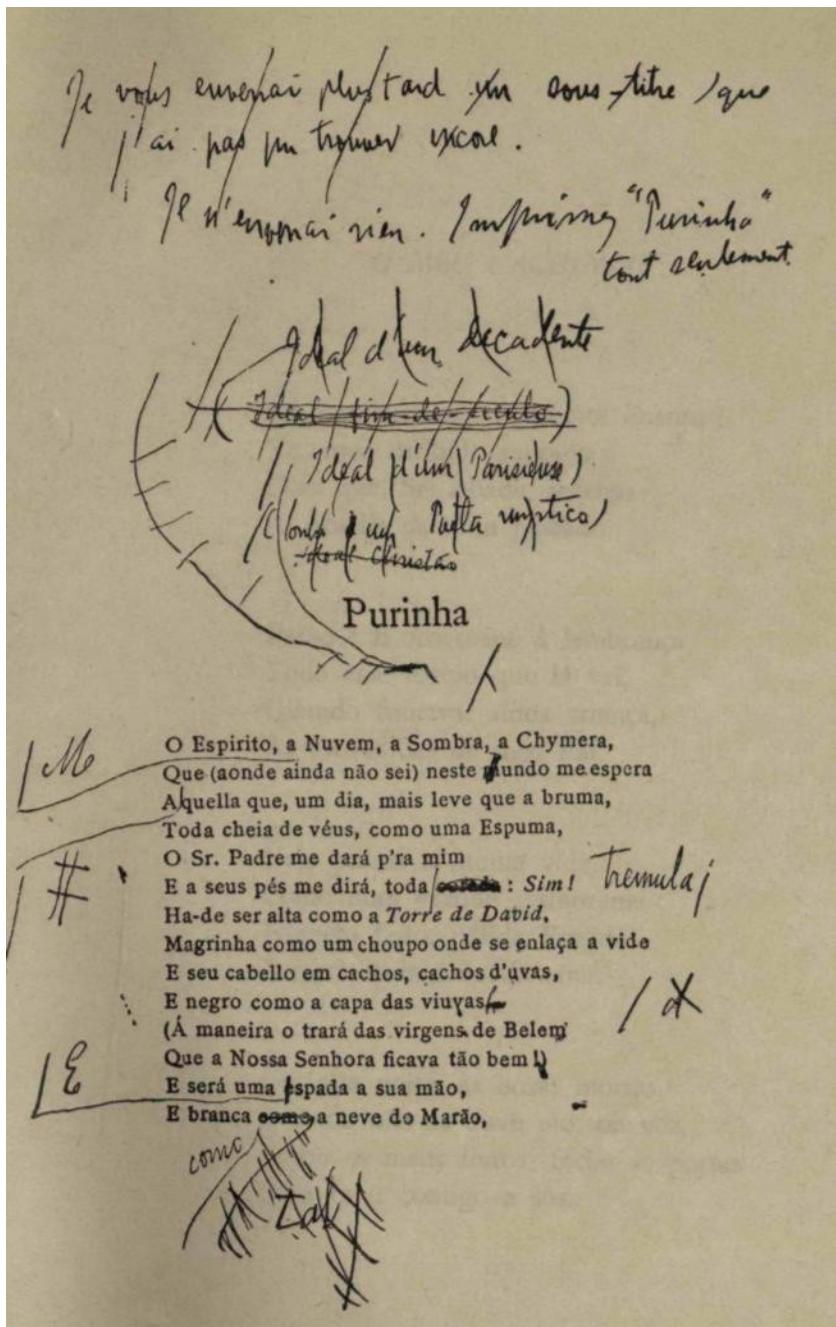 Je vous enverrai plus tard un sous-titre que
j'ai pas pu trouver encore.
Je n'enverrai rien. Imprimez "Purinha"
tout seulement.
Ideal d'um decadente
(Ideal fin-de-)
Ideal d'um Parisiense)
um Poeta mystico)
Ideal Christão
Purinha
M
O Espirito, a Nuvem, a Sombra, a Chymera,
Que (aonde ainda não sei) neste mundo me espera
Aquella que, um dia, mais leve que a bruma,
Toda cheia de véus, como uma Espuma,
O Sr. Padre me dará p'ra mim
E a seus pés me dirá, toda : Sim! tremula
Ha-de ser alta como a Torre de David,
Magrinha como um choupo onde se enlaça a vide
E seu cabello em cachos, cachos d'uvas,
E negro como a capa das viuvas
(Á maneira o trará das virgens de Belem
Que a Nossa Senhora ficava tão bem!)
E
E será uma espada a sua mão,
E branca como a neve do Marão,
como